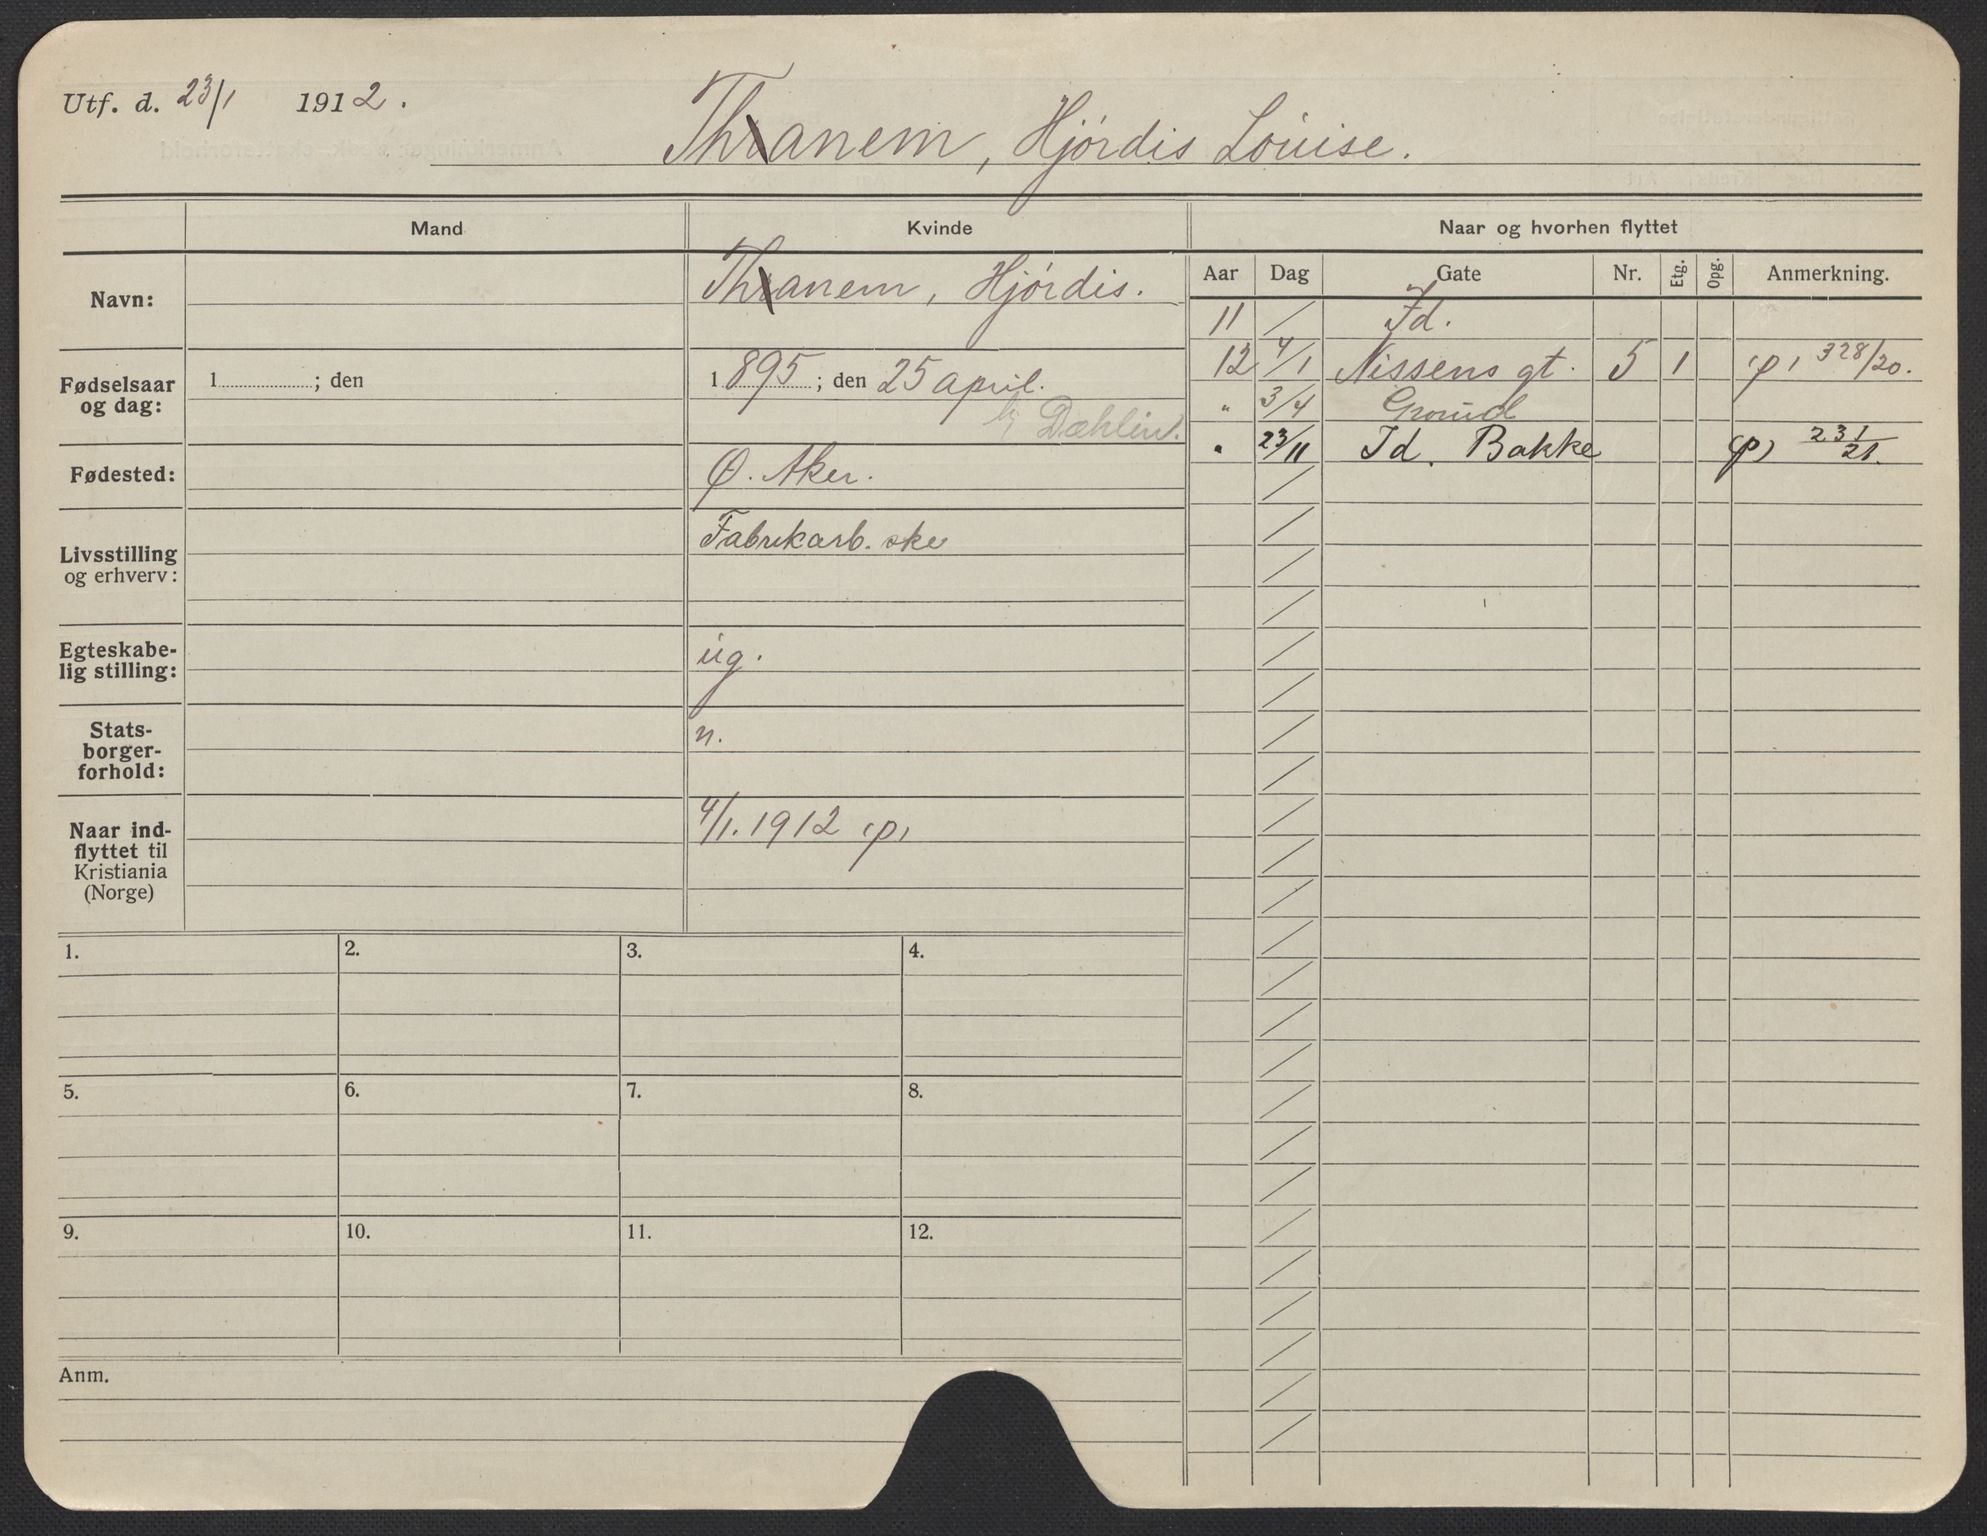 Utf. d. 23/1 1912.
Thranem, Hjördis Louise.
Mand
Kvinde
Naar og hvorhen flyttet
Aar Dag Gate Nr. Etg. Opg. Anmerkning.
Navn:
Thranem, Hjördis.
Fødselsaar
og dag:
1 ; den
1 895 ; den 25 april.
Dæhlin.
Fødested:
Ø. Aker.
Livsstilling
og erhverv:
Fabrikarb.ske
Egteskabe-
lig stilling:
ug.
Stats-
borger-
forhold:
n.
Naar ind-
flyttet til
Kristiania
(Norge)
4/1. 1912 (p)
11 / Id.
12 4/1 Nissens gt. 5 1 (p) 328/20.
" 3/4 Grorud
" 23/11 Id. Bakke (p) 231/21.
1. 2. 3. 4.
5. 6. 7. 8.
9. 10. 11. 12.
Anm.